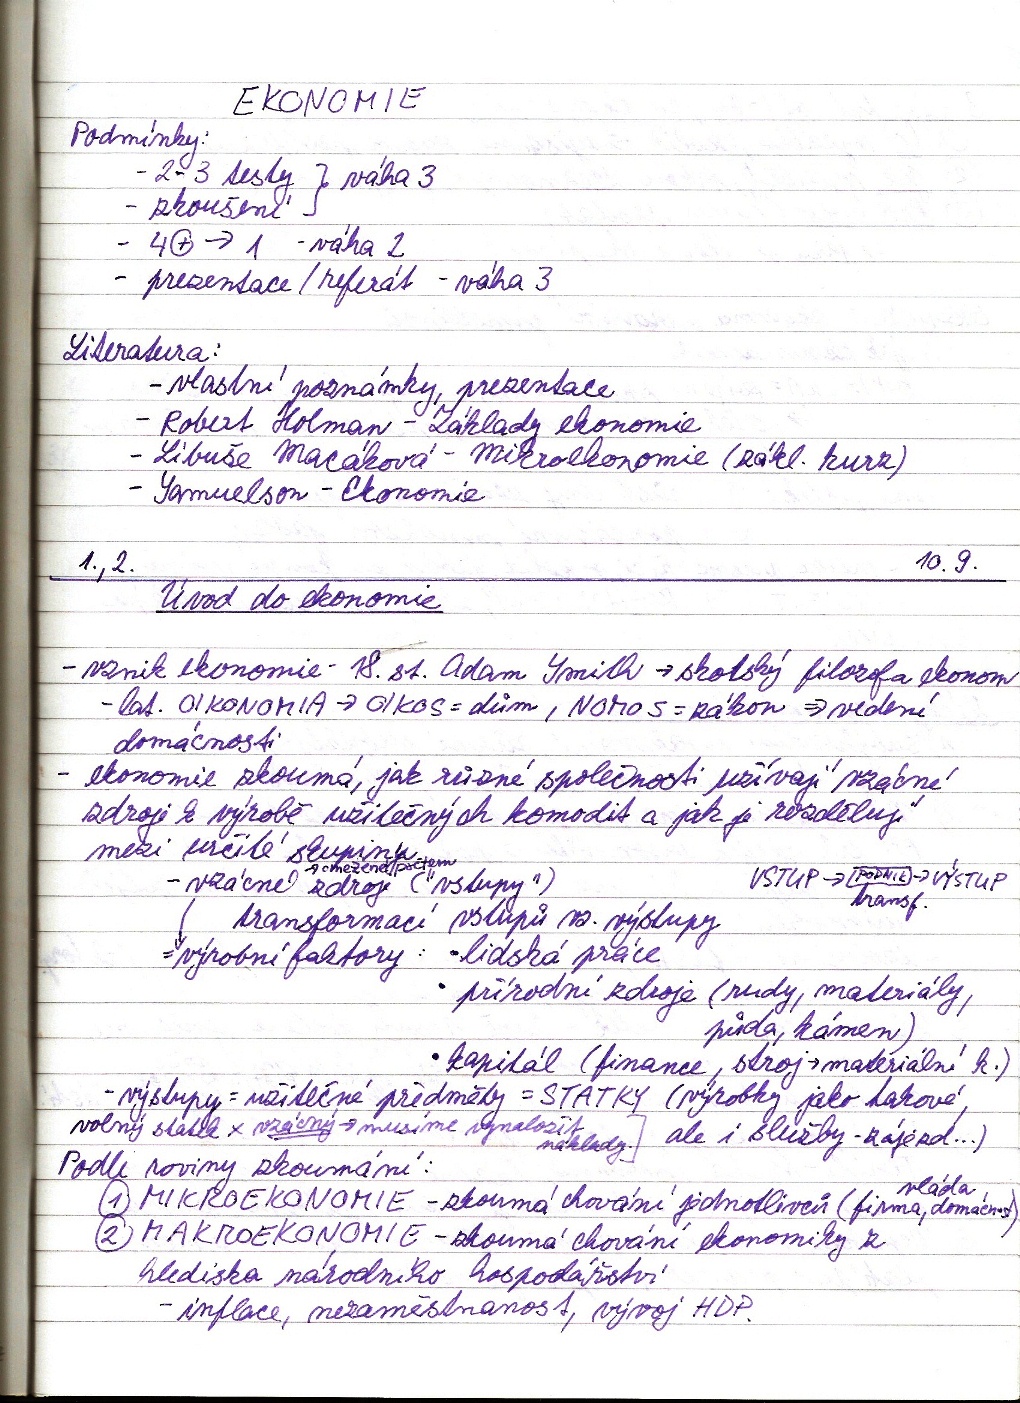 EKONOMIE
Podmínky:
- 2-3 testy } váha 3
- zkoušení
- 4⊕ → 1 - váha 2
- prezentace / referát - váha 3
Literatura:
- vlastní poznámky, prezentace
- Robert Holman - Základy ekonomie
- Libuše Macáková - Mikroekonomie (zákl. kurz)
- Samuelson - Ekonomie
1., 2. 10. 9.
Úvod do ekonomie
- vznik ekonomie - 18. st. Adam Smith → skotský filozof a ekonom
- lat. OIKONOMIA → OIKOS = dům, NOMOS = zákon ⇒ vedení
domácnosti
- ekonomie zkoumá, jak různé společnosti užívají vzácné
zdroje k výrobě užitečných komodit a jak je rozdělují
mezi určité skupiny
→ omezené počtem
- vzácné zdroje ("vstupy") VSTUP → PODNIK → VÝSTUP
transf.
transformací vstupů vz. výstupy
= výrobní faktory: • lidská práce
• přírodní zdroje (rudy, materiály,
půda, kámen)
• kapitál (finance, stroj → materiální k.)
- výstupy = užitečné předměty = STATKY (výrobky jako takové,
volný statek x vzácný → musíme vynaložit náklady] ale i služby - zájezd...)
Podle roviny zkoumání:
① MIKROEKONOMIE - zkoumá chování jednotlivců (firma, vláda, domácnost)
② MAKROEKONOMIE - zkoumá chování ekonomiky z
hlediska národního hospodářství
- inflace, nezaměstnanost, vývoj HDP.